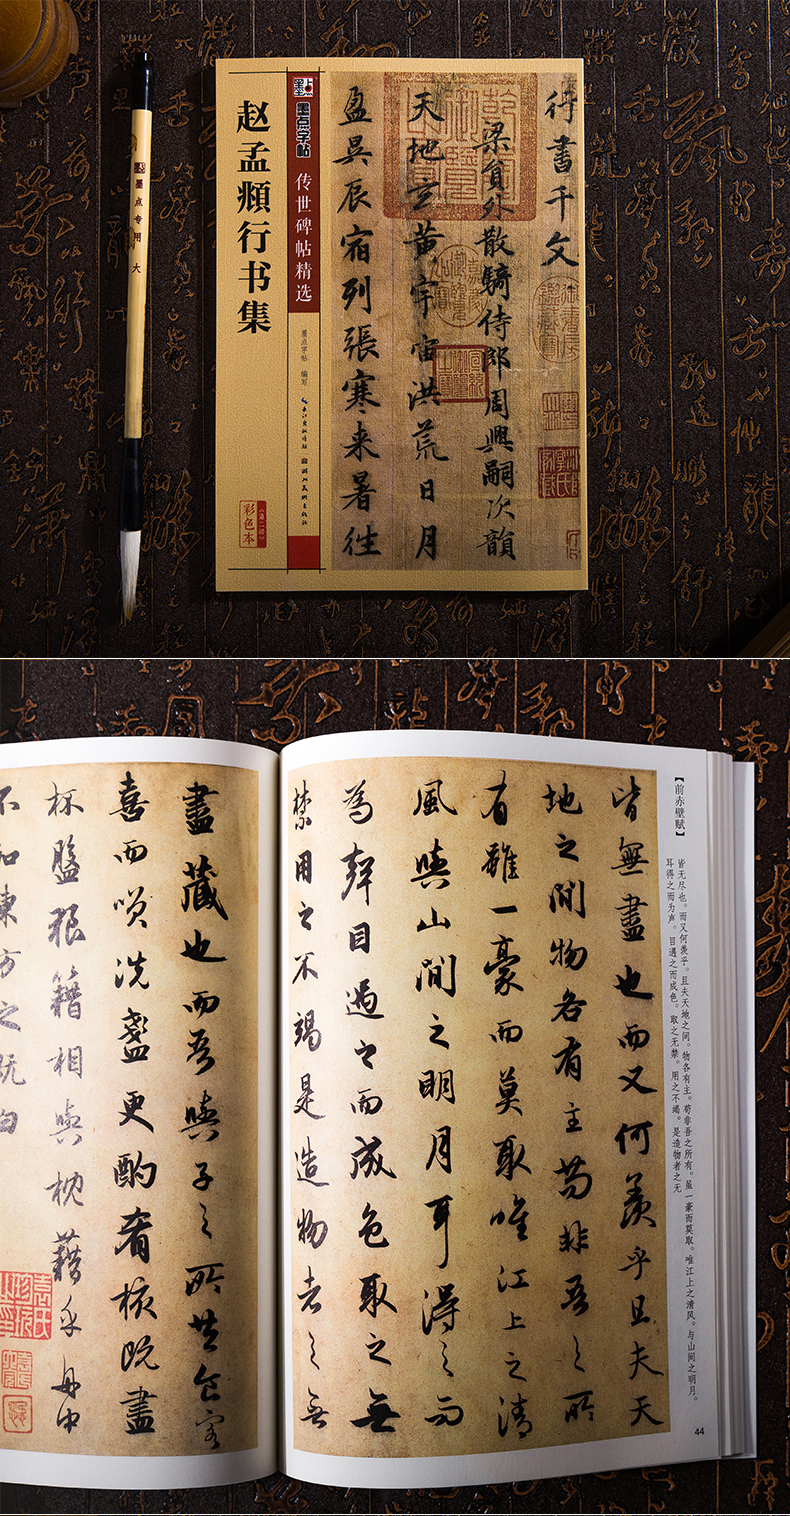 墨点专用 大
赵孟頫行书集
墨点字帖
传世碑帖精选
墨点字帖 编写
长江出版传媒 湖北美术出版社
彩色本
《第二辑》
行書千文
梁員外散騎侍郎周興嗣次韻
天地玄黃宇宙洪荒日月
盈昃辰宿列張寒来暑往
【前赤壁赋】
皆无尽也。而又何羡乎。且夫天地之间。物各有主。苟非吾之所有。虽一豪而莫取。唯江上之清风。与山间之明月。
耳得之而为声。目遇之而成色。取之无禁。用之不竭。是造物者之无
皆無盡也而又何羨乎且夫天
地之間物各有主苟非吾之所
有雖一豪而莫取唯江上之清
風與山間之明月耳得之而
為聲目遇之而成色取之無
禁用之不竭是造物者之無
44
盡藏也而吾與子之所共食客
喜而咲洗盞更酌肴核既盡
杯盤狼籍相與枕藉乎舟中
不知東方之既白